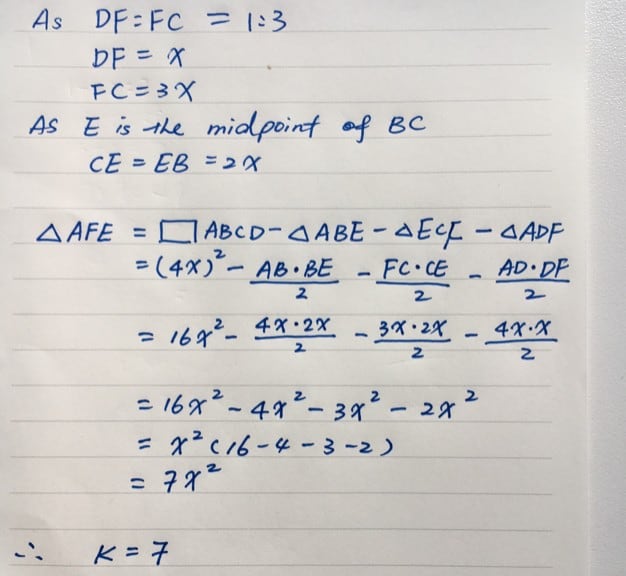 As DF:FC = 1:3
DF = x
FC = 3x
As E is the midpoint of BC
CE = EB = 2x
△AFE = □ABCD - △ABE - △ECF - △ADF
= (4x)² - AB·BE/2 - FC·CE/2 - AD·DF/2
= 16x² - 4x·2x/2 - 3x·2x/2 - 4x·x/2
= 16x² - 4x² - 3x² - 2x²
= x²(16-4-3-2)
= 7x²
∴ K = 7